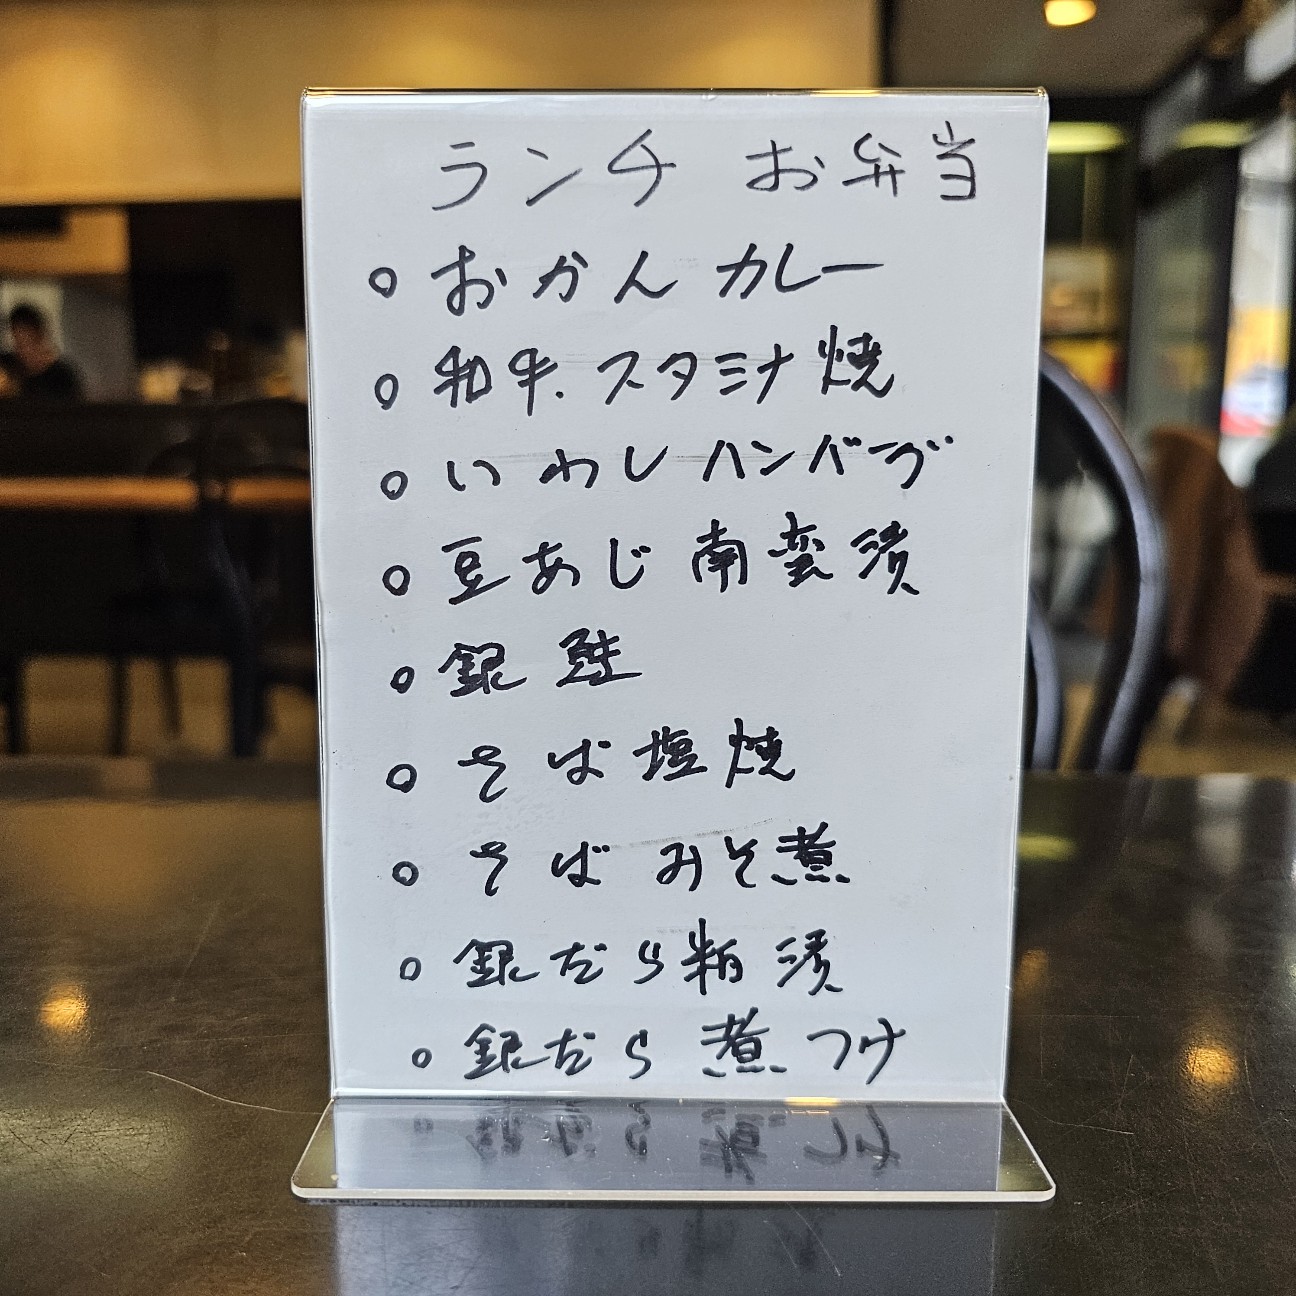 ランチ お弁当
○ おかんカレー
○ 和牛.スタミナ焼
○ いわしハンバーグ
○ 豆あじ南蛮漬
○ 銀鮭
○ さば塩焼
○ さばみそ煮
○ 銀だら粕漬
○ 銀だら煮つけ